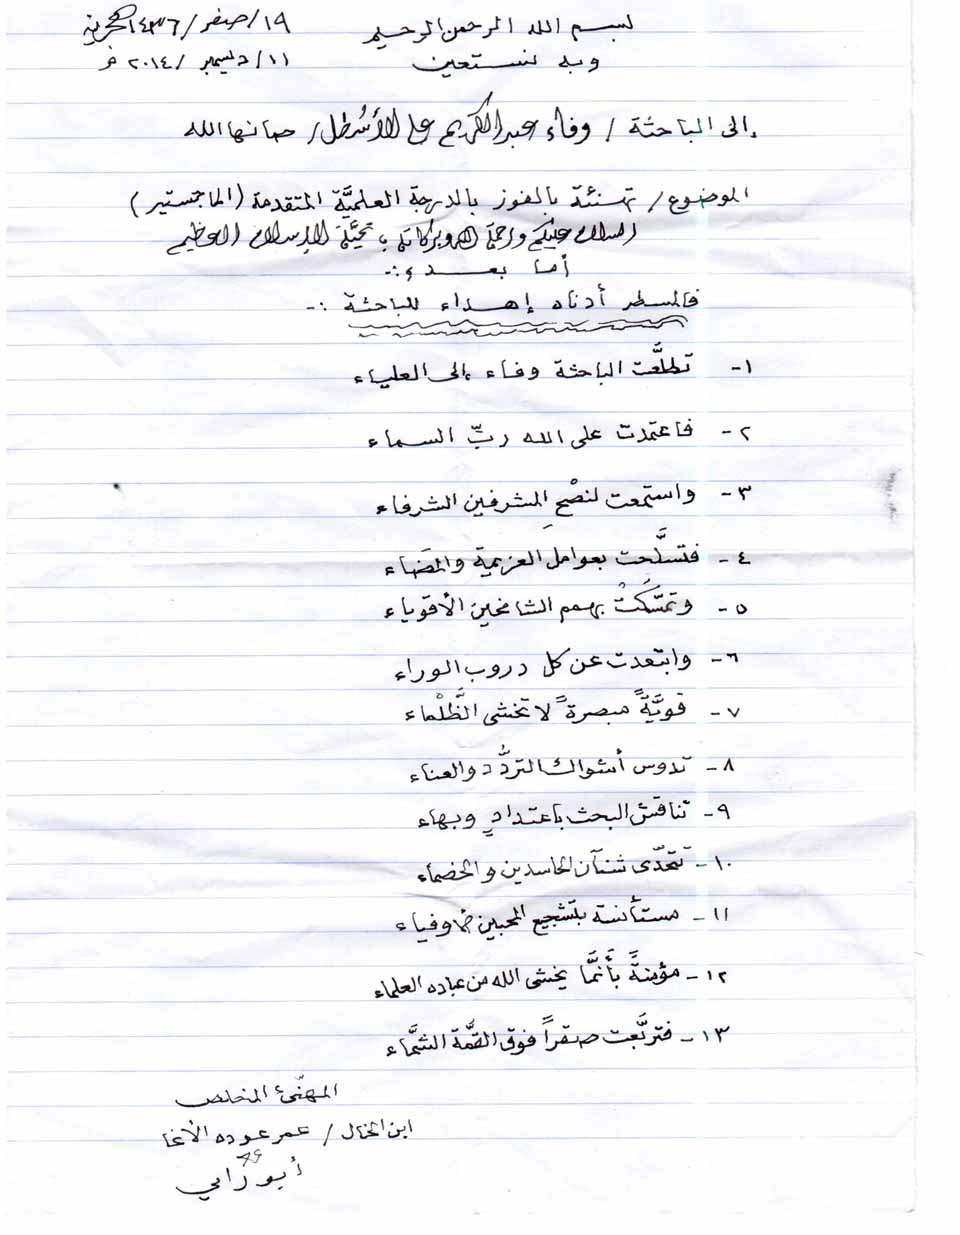 بسم الله الرحمن الرحيم
١٩/صفر/١٤٣٦هجرية
وبه نستعين
١١/ديسمبر/٢٠١٤م
إلى الباحثة / وفاء عبد الكريم علي الأسطل / صانها الله
الموضوع / تهنئة بالفوز بالدرجة العلميَّة المتقدمة (الماجستير)
السلام عليكم ورحمة الله وبركاته تحيَّة الإسلام العظيم
أما بعد ،:-
فالمسطر أدناه إهداء للباحثة :-
١- تطلَّعت الباحثة وفاء إلى العلياء
٢- فاعتمدت على الله ربِّ السماء
٣- واستمعت لنصْحِ المشرفين الشرفاء
٤- فتسلَّحت بعوامل العزيمة والمضَاء
٥- وتمسَّكَتْ بهمم الشامخين الأقوياء
٦- وابتعدت عن كل دروب الوراء
٧- قويَّةً مبصرةً لا تخشى الظَّلْماء
٨- تدوس أشواك التردُّد والعناء
٩- تناقش البحث باعتدادٍ وبهاء
١٠- تتحدَّى شنآن الحاسدين والخصماء
١١- مستأنسة بتشجيع المحبين
١٢- مؤمنةً بأَنَّمَّا يخشى الله من عباده العلماء
١٣- فتربَّعت صقراً فوق القمَّة الشمَّاء
المهنّئ المخلص
ابن الخال / عمر عوده الأغا
أبو رامي